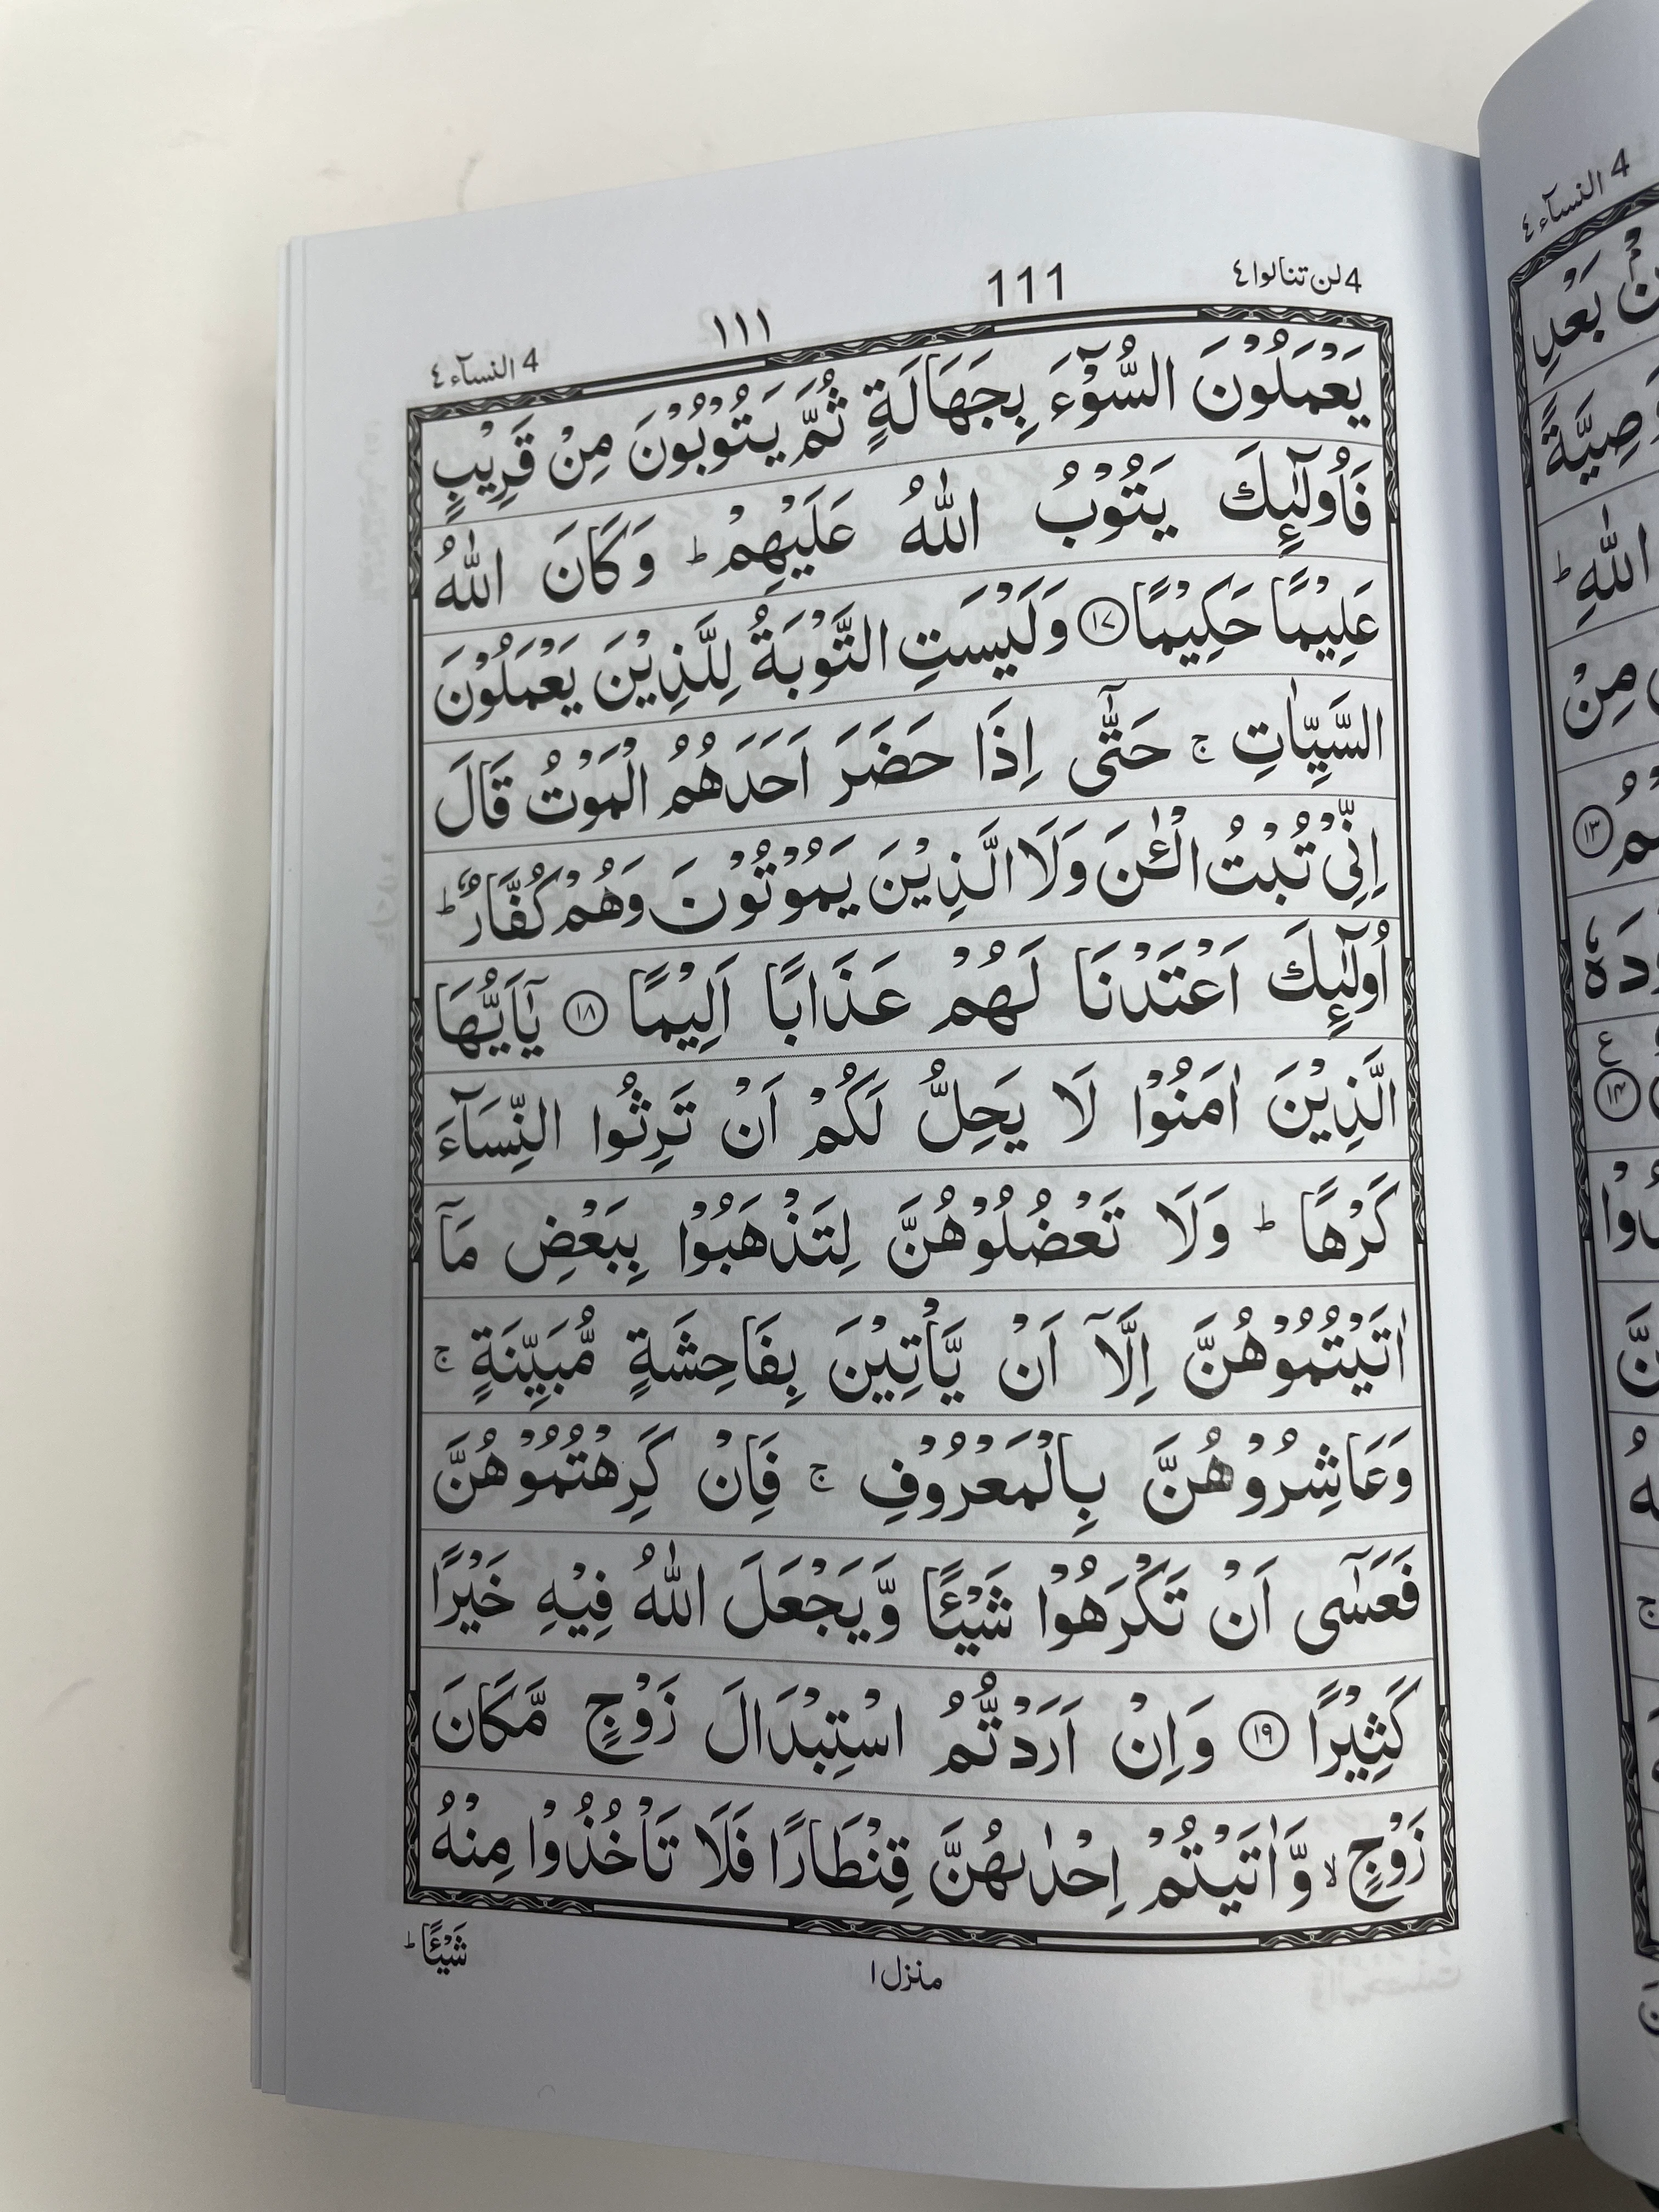 4 لن تنالوا ٤
111
١١١
4 النسآء ٤
يَعْمَلُوْنَ السُّوْٓءَ بِجَهَالَةٍ ثُمَّ يَتُوْبُوْنَ مِنْ قَرِيْبٍ
فَاُولٰٓئِكَ يَتُوْبُ اللّٰهُ عَلَيْهِمْ ؕ وَكَانَ اللّٰهُ
عَلِيْمًا حَكِيْمًا ⁧۝١٧⁩ وَلَيْسَتِ التَّوْبَةُ لِلَّذِيْنَ يَعْمَلُوْنَ
السَّيِّاٰتِ ۚ حَتّٰٓى اِذَا حَضَرَ اَحَدَهُمُ الْمَوْتُ قَالَ
اِنِّىْ تُبْتُ الْـٰٔنَ وَلَا الَّذِيْنَ يَمُوْتُوْنَ وَهُمْ كُفَّارٌ ؕ
اُولٰٓئِكَ اَعْتَدْنَا لَهُمْ عَذَابًا اَلِيْمًا ⁧۝١٨⁩ يٰٓاَيُّهَا
الَّذِيْنَ اٰمَنُوْا لَا يَحِلُّ لَكُمْ اَنْ تَرِثُوا النِّسَآءَ
كَرْهًا ؕ وَلَا تَعْضُلُوْهُنَّ لِتَذْهَبُوْا بِبَعْضِ مَآ
اٰتَيْتُمُوْهُنَّ اِلَّآ اَنْ يَّاْتِيْنَ بِفَاحِشَةٍ مُّبَيِّنَةٍ ۚ
وَعَاشِرُوْهُنَّ بِالْمَعْرُوْفِ ۚ فَاِنْ كَرِهْتُمُوْهُنَّ
فَعَسٰٓى اَنْ تَكْرَهُوْا شَيْـًٔا وَّيَجْعَلَ اللّٰهُ فِيْهِ خَيْرًا
كَثِيْرًا ⁧۝١٩⁩ وَاِنْ اَرَدْتُّمُ اسْتِبْدَالَ زَوْجٍ مَّكَانَ
زَوْجٍ ۙ وَّاٰتَيْتُمْ اِحْدٰىهُنَّ قِنْطَارًا فَلَا تَاْخُذُوْا مِنْهُ
شَيْـًٔا ؕ
منزل ١
4 النسآء ٤
بَعْدِ
وَصِيَّةً
اللّٰهِ ؕ
مِنْ
١٣
١٤